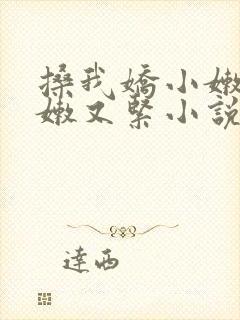 搡我嬌小嫩
嫩又緊小說
達西